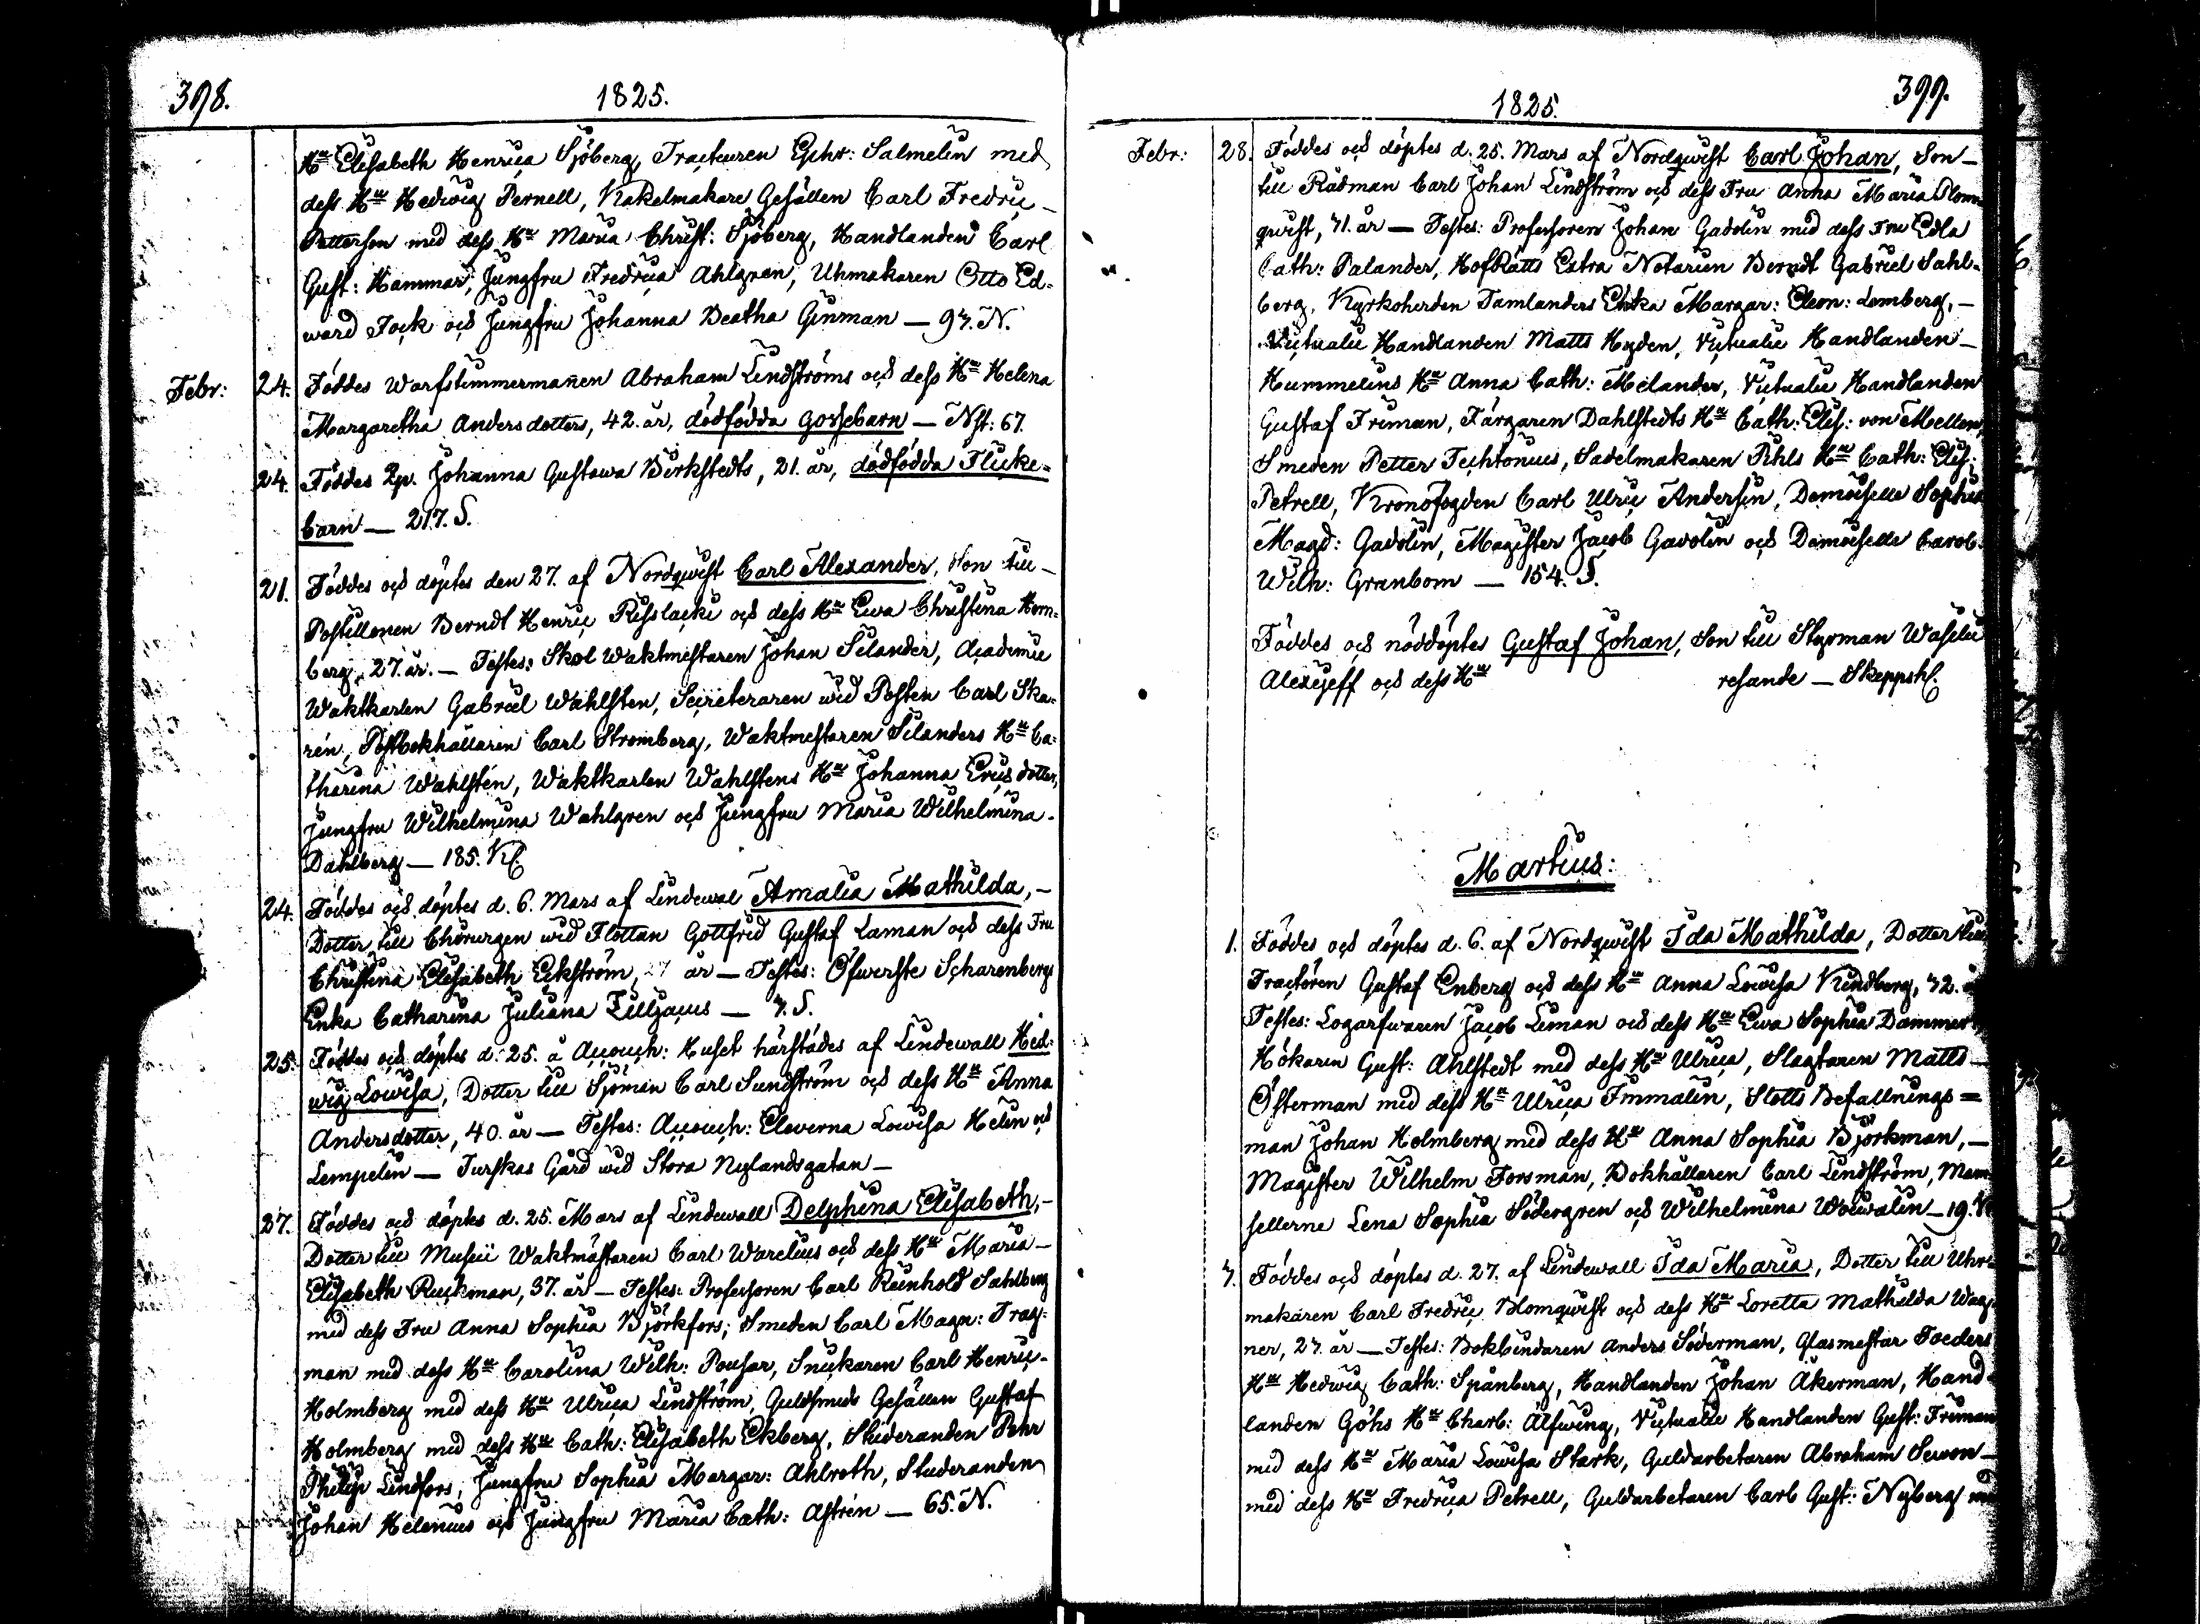 398.
1825.
Hu Elisabeth Henrica Sjöberg, Tracteuren Ephr: Salmelin med
dess Hu Hedwig Pernell, Kakelmakare Gesällen Carl Fredric
Petterson med dess Hu Maria Christ: Sjöberg, Handlanden Carl
Gust: Hammar, Jungfru Fredrica Ahlgren, Uhrmakaren Otto Ed-
ward Fock och Jungfru Johanna Beatha Ginman — 97. N.
Febr: 24. Föddes Warfstimmermañen Abraham Lindströms och dess Hu Helena
Margaretha Andersdotters, 42. år, dödfödda gossebarn — Nst: 67.
24. Föddes Qp. Johanna Gustava Birkstedts, 21. år, dödfödda Flicke-
barn — 217. S.
21. Föddes och döptes den 27. af Nordqwist Carl Alexander, Son till
Postillonen Berndt Henric Risslacki och dess Hu Ewa Christina Horn-
berg, 27. år. — Testes: Skol Waktmestaren Johan Silander, Academie
Waktkarlen Gabriel Wahlsten, Secreteraren wid Posten Carl Ska-
rén, Postbokhållaren Carl Stromberg, Waktmestaren Silanders Hu Ca-
tharina Wahlstén, Waktkarlen Wahlstens Hu Johanna Ericsdotter,
Jungfru Wilhelmina Wahlgren och Jungfru Maria Wilhelmina
Dahlberg — 185. Kl.
24. Föddes och döptes d. 6. Mars af Lindewal Amalia Mathilda, —
Dotter till Chirurgen wid Flottan Gottfrid Gustaf Laman och dess Fru
Christina Elisabeth Eckström, 27 år — Testes: Öfwerste Scharenbergs
Enka Catharina Juliana Lilljaeus — 7. S.
25. Föddes och döptes d. 25. å Accouch: Huset härstädes af Lindewall Hed-
wig Lowisa, Dotter till Sjöman Carl Sundström och dess Hu Anna
Andersdotter, 40. år — Testes: Accouch: Eleverna Lowisa Helin och
Lempelin — Turskas Gård wid Stora Nylandsgatan —
27. Föddes och döptes d. 25. Mars af Lindewall Delphina Elisabeth, —
Dotter till Museii Waktmästaren Carl Warelius och dess Hu Maria —
Elisabeth Ruckman, 37. år — Testes: Professoren Carl Reinhold Sahlberg
med dess Fru Anna Sophia Björkfors, Smeden Carl Magn: Trag-
man med dess Hu Carolina Wilh: Pousar, Snickaren Carl Henric
Holmberg med dess Hu Ulrica Lindström, Guldsmeds Gesällen Gustaf
Holmberg med dess Hu Cath: Elisabeth Ekberg, Studeranden Pehr
Philip Lindfors, Jungfru Sophia Margar: Ahlroth, Studeranden
Johan Helenius och Jungfru Maria Cath: Astrén — 65. N.
1825.
399.
Febr: 28. Föddes och döptes d. 25. Mars af Nordqwist Carl Johan, Son —
till Rådman Carl Johan Lindström och dess Fru Anna Maria Blom
qwist, 41. år — Testes: Professoren Johan Gadolin med dess Fru Edla
Cath: Palander, HofRätts Extra Notarien Berndt Gabriel Sahl-
berg, Kyrkoherden Tamlanders Enka Margar: Eleon: Lemberg, —
Victualie Handlanden Matts Hyden, Victualie Handlanden —
Hummelins Hu Anna Cath: Melander, Victualie Handlanden
Gustaf Friman, Färgaren Dahlstedts Hu Cath: Elis: von Mellen,
Smeden Petter Techtonius, Sadelmakaren Pihls Hu Cath: Elis:
Petrell, Kronofogden Carl Ulric Andersin, Demoiselle Sophia
Magd: Gadolin, Magister Jacob Gadolin och Demoiselle Carol:
Wilh: Granbom — 154. S.
Föddes och nöddöptes Gustaf Johan, Son till Styrman Wasilii
Alexejeff och dess Hu resande — Skeppskl.
Martius:
1. Föddes och döptes d. 6. af Nordqwist Ida Mathilda, Dotter till
Tractören Gustaf Enberg och dess Hu Anna Lowisa Kindberg, 42.
Testes: Logarfwaren Jacob Liman och dess Hu Ewa Sophia Dammert
Hökaren Gust: Ahlstedt med dess Hu Ulrica, Slagtaren Matts —
Österman med dess Hu Ulrica Immalin, Slotts Befallnings=
man Johan Holmberg med dess Hu Anna Sophia Björkman, —
Magister Wilhelm Forsman, Bokhållaren Carl Lindström, Mam
sellerne Lena Sophia Södergren och Wilhelmina Wouvalin — 19. K
7. Föddes och döptes d. 27. af Lindewall Ida Maria, Dotter till Uhr-
makaren Carl Fredric Blomqwist och dess Hu Loretta Mathilda Wag
ner, 27. år — Testes: Bokbindaren Anders Söderman, Glasmestar Foeders
Hu Hedwig Cath: Spånberg, Handlanden Johan Åkerman, Hand-
landen Göhs Hu Charl: Alfwing, Victualie Handlanden Gust: Friman
med dess Hu Maria Lowisa Stark, Guldarbetaren Abraham Sevon —
med dess Hu Fredrica Petrell, Guldarbetaren Carl Gust: Nyberg med